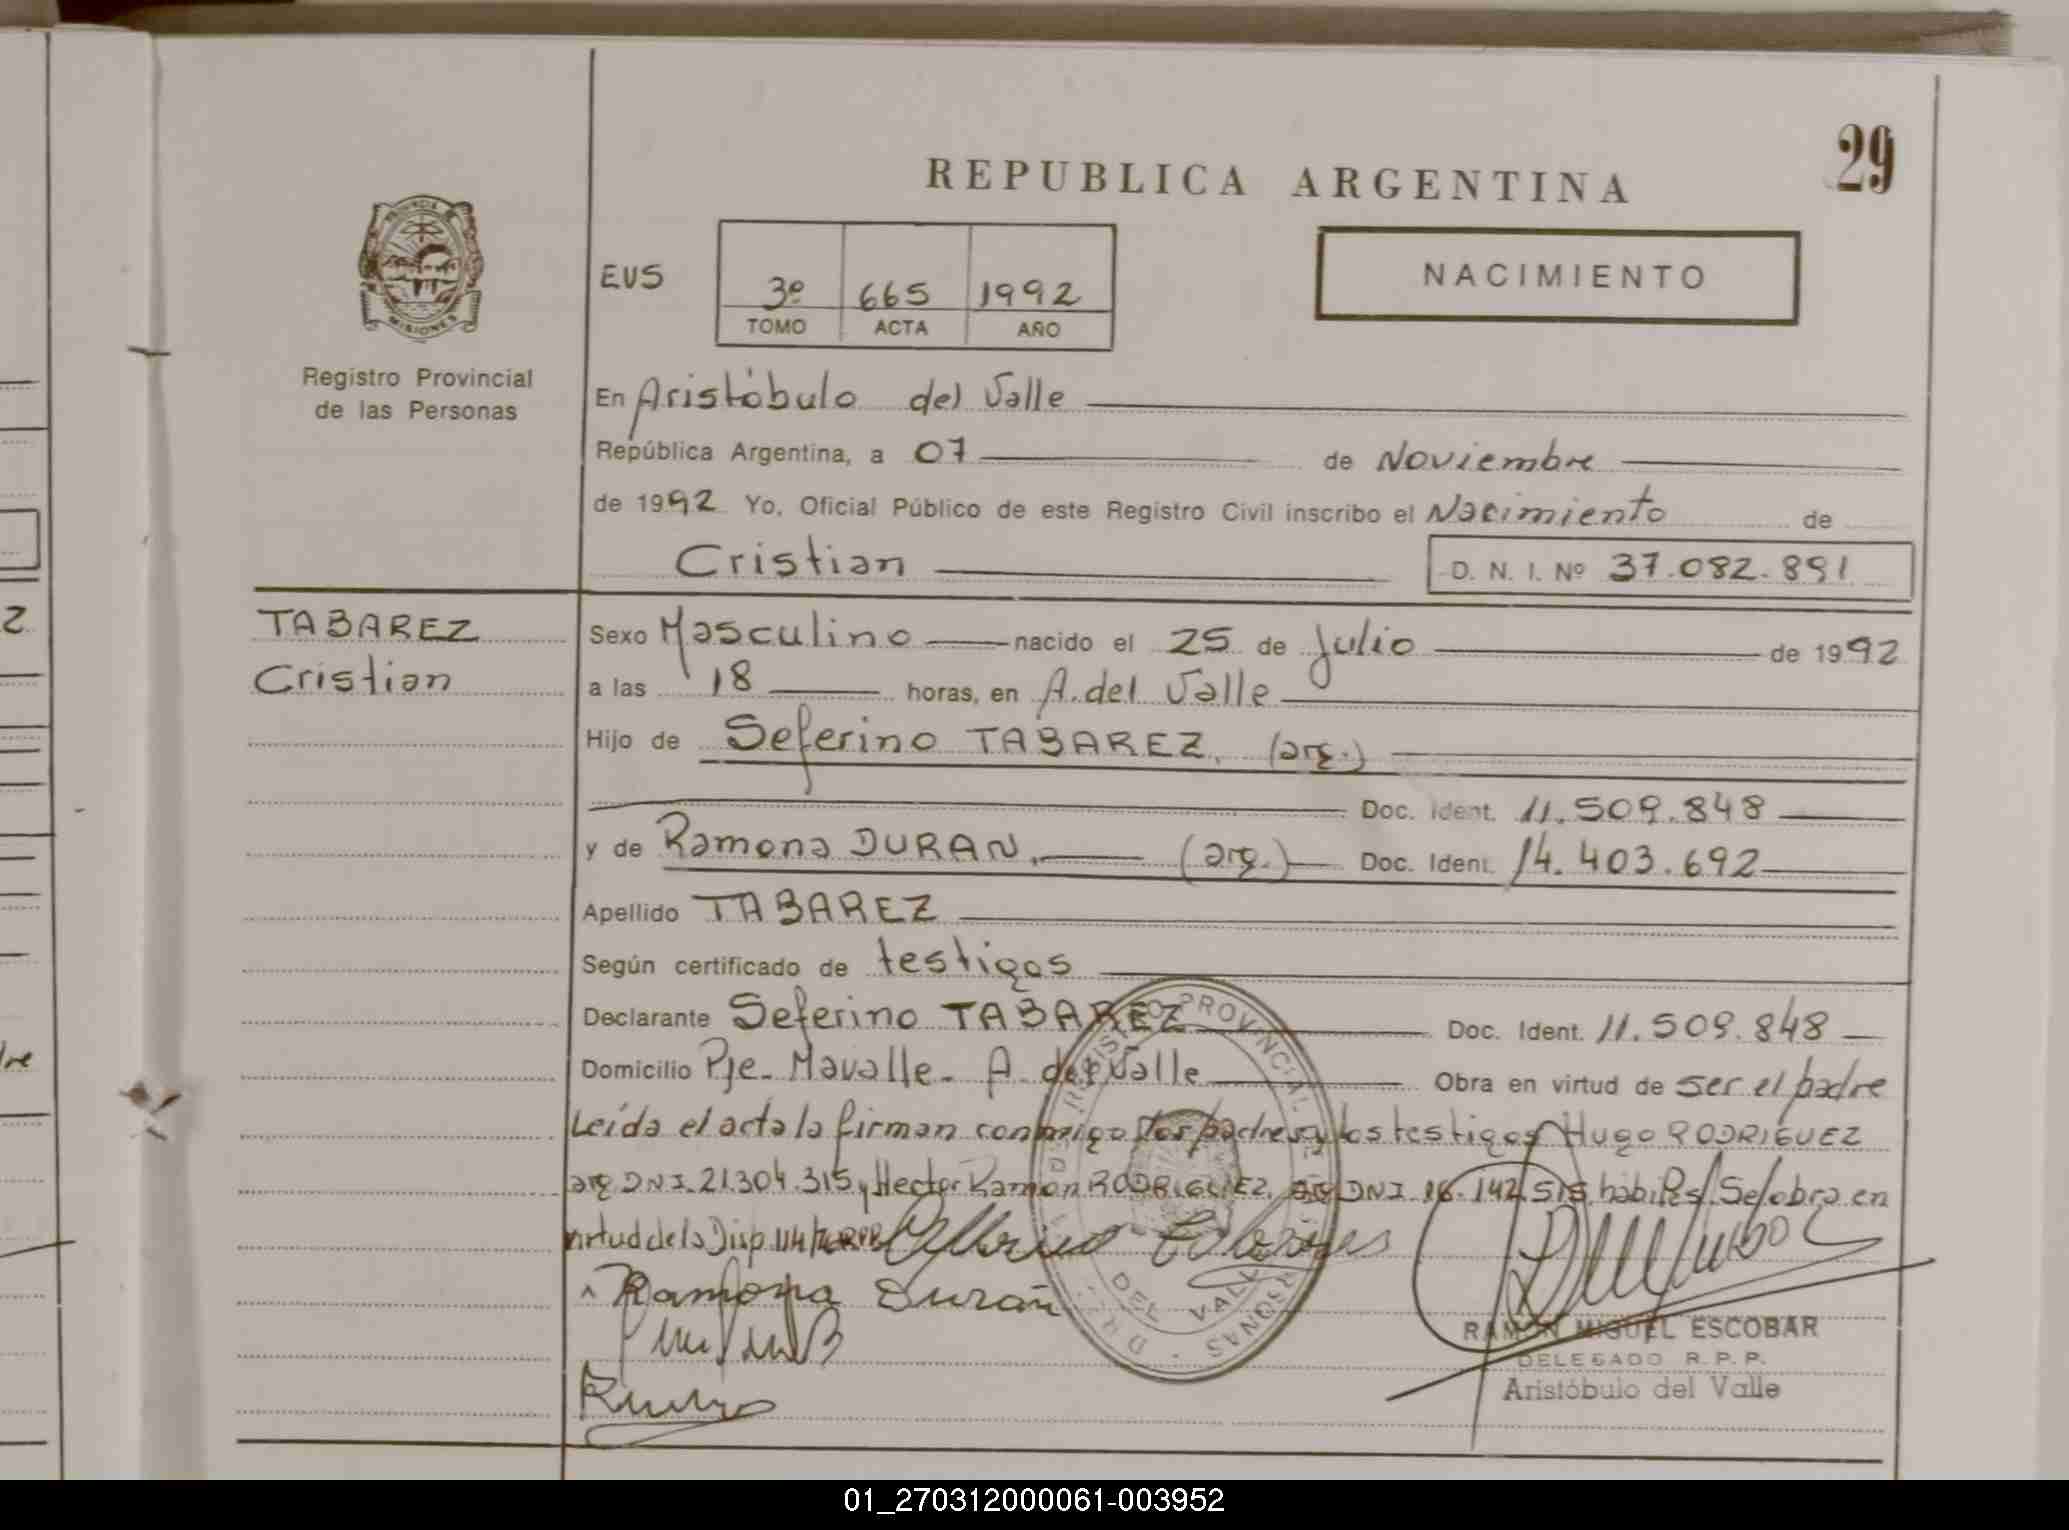 29
REPUBLICA ARGENTINA
PROVINCIA DE
MISIONES
Registro Provincial
de las Personas
NACIMIENTO
EUS
3º 665 1992
TOMO ACTA AÑO
En Aristóbulo del Valle
República Argentina, a 07 de Noviembre
de 1992 Yo, Oficial Público de este Registro Civil inscribo el Nacimiento de
Cristian
D. N. I. Nº 37.082.891
TABAREZ
Cristian
Sexo Masculino nacido el 25 de Julio de 1992
a las 18 horas, en A. del Valle
Hijo de Seferino TABAREZ, (arg.)
Doc. Ident. 11.509.848
y de Ramona DURAN, (arg.) Doc. Ident. 14.403.692
Apellido TABAREZ
Según certificado de testigos
Declarante Seferino TABAREZ Doc. Ident. 11.509.848
Domicilio Pje. Mavalle - A. del Valle Obra en virtud de ser el padre
Leída el acta la firman conmigo los padres y los testigos Hugo RODRIGUEZ
arg DNI. 21.304.315 y Hector Ramon RODRIGUEZ, arg DNI. 16.142.515 hábiles. Se labra en
virtud de la Disp.
Ramona Duran
REGISTRO PROVINCIAL DE LAS PERSONAS
DEL VALLE
RAMON MIGUEL ESCOBAR
DELEGADO R. P. P.
Aristóbulo del Valle
Z
dre
01_270312000061-003952